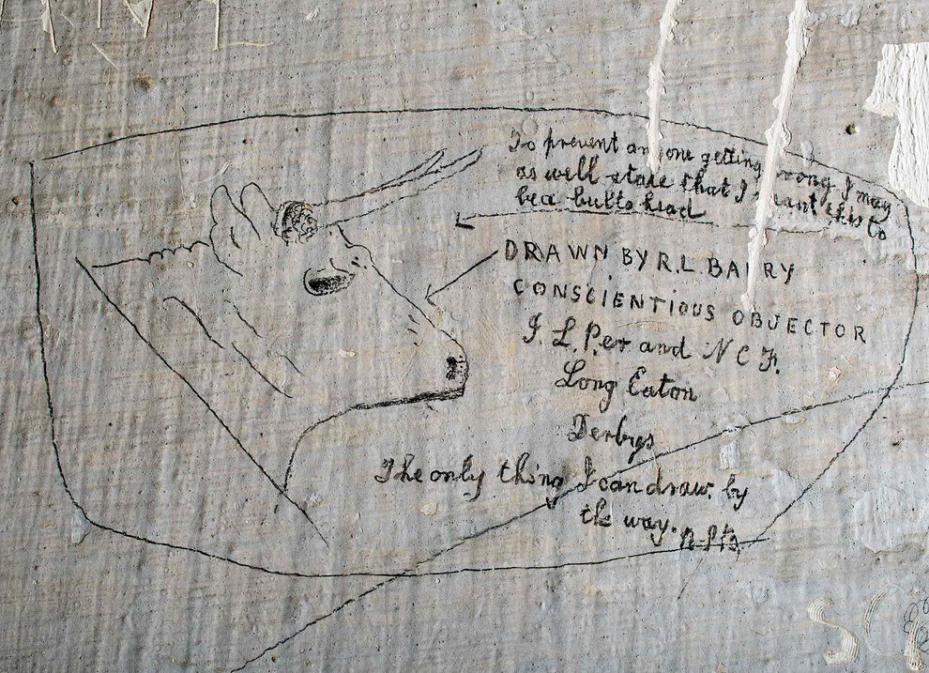 To prevent anyone getting wrong I may
as well state that I want this to
be a bull's head
DRAWN BY R.L. BARRY
CONSCIENTIOUS OBJECTOR
I. L. P.er and N C F.
Long Eaton
Derbys
The only thing I can draw, by
the way.